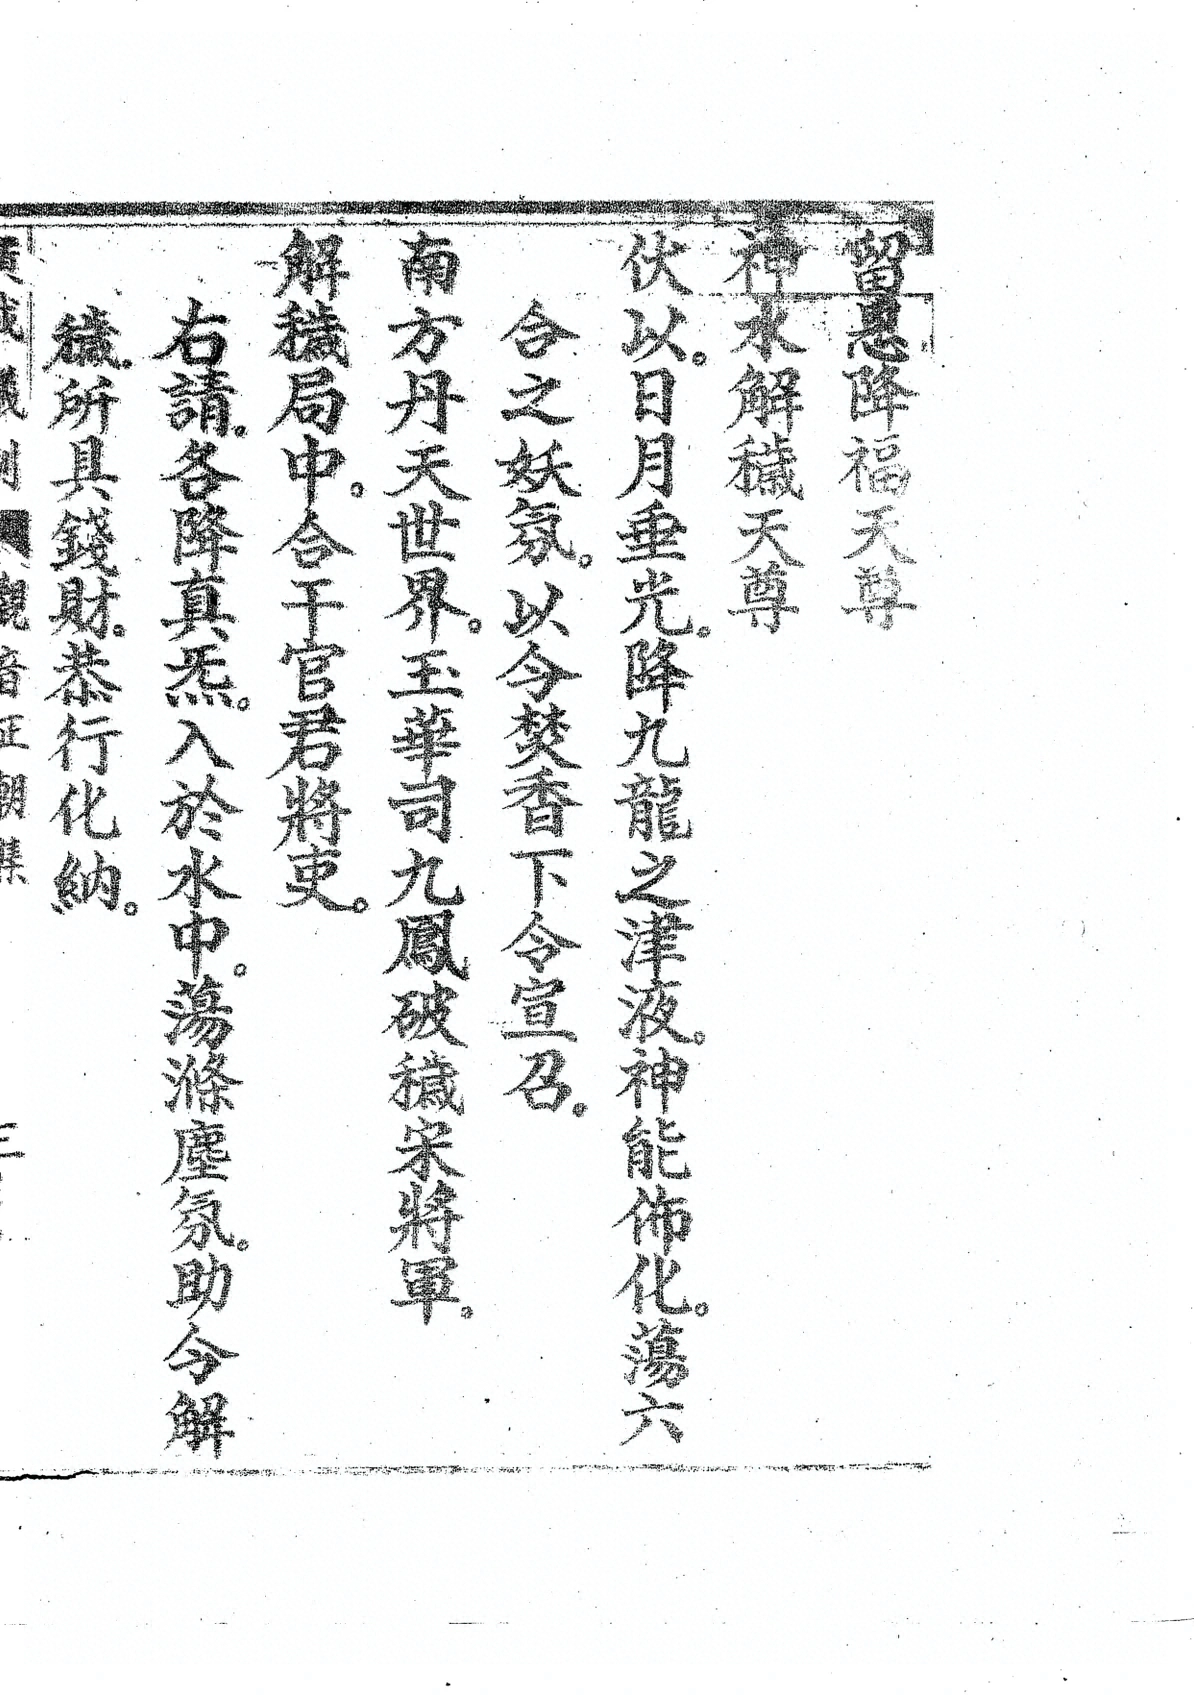 留恩降福天尊
神水解穢天尊
伏以。日月垂光。降九龍之津液。神能佈化。蕩六
合之妖氛。以今焚香下令宣召。
南方丹天世界。玉華司九鳳破穢宋將軍。
解穢局中。合干官君將吏。
右請。各降真炁。入於水中。蕩滌塵氛。助令解
穢。所具錢財。恭行化納。
廣成儀制 觀音正朝集 三